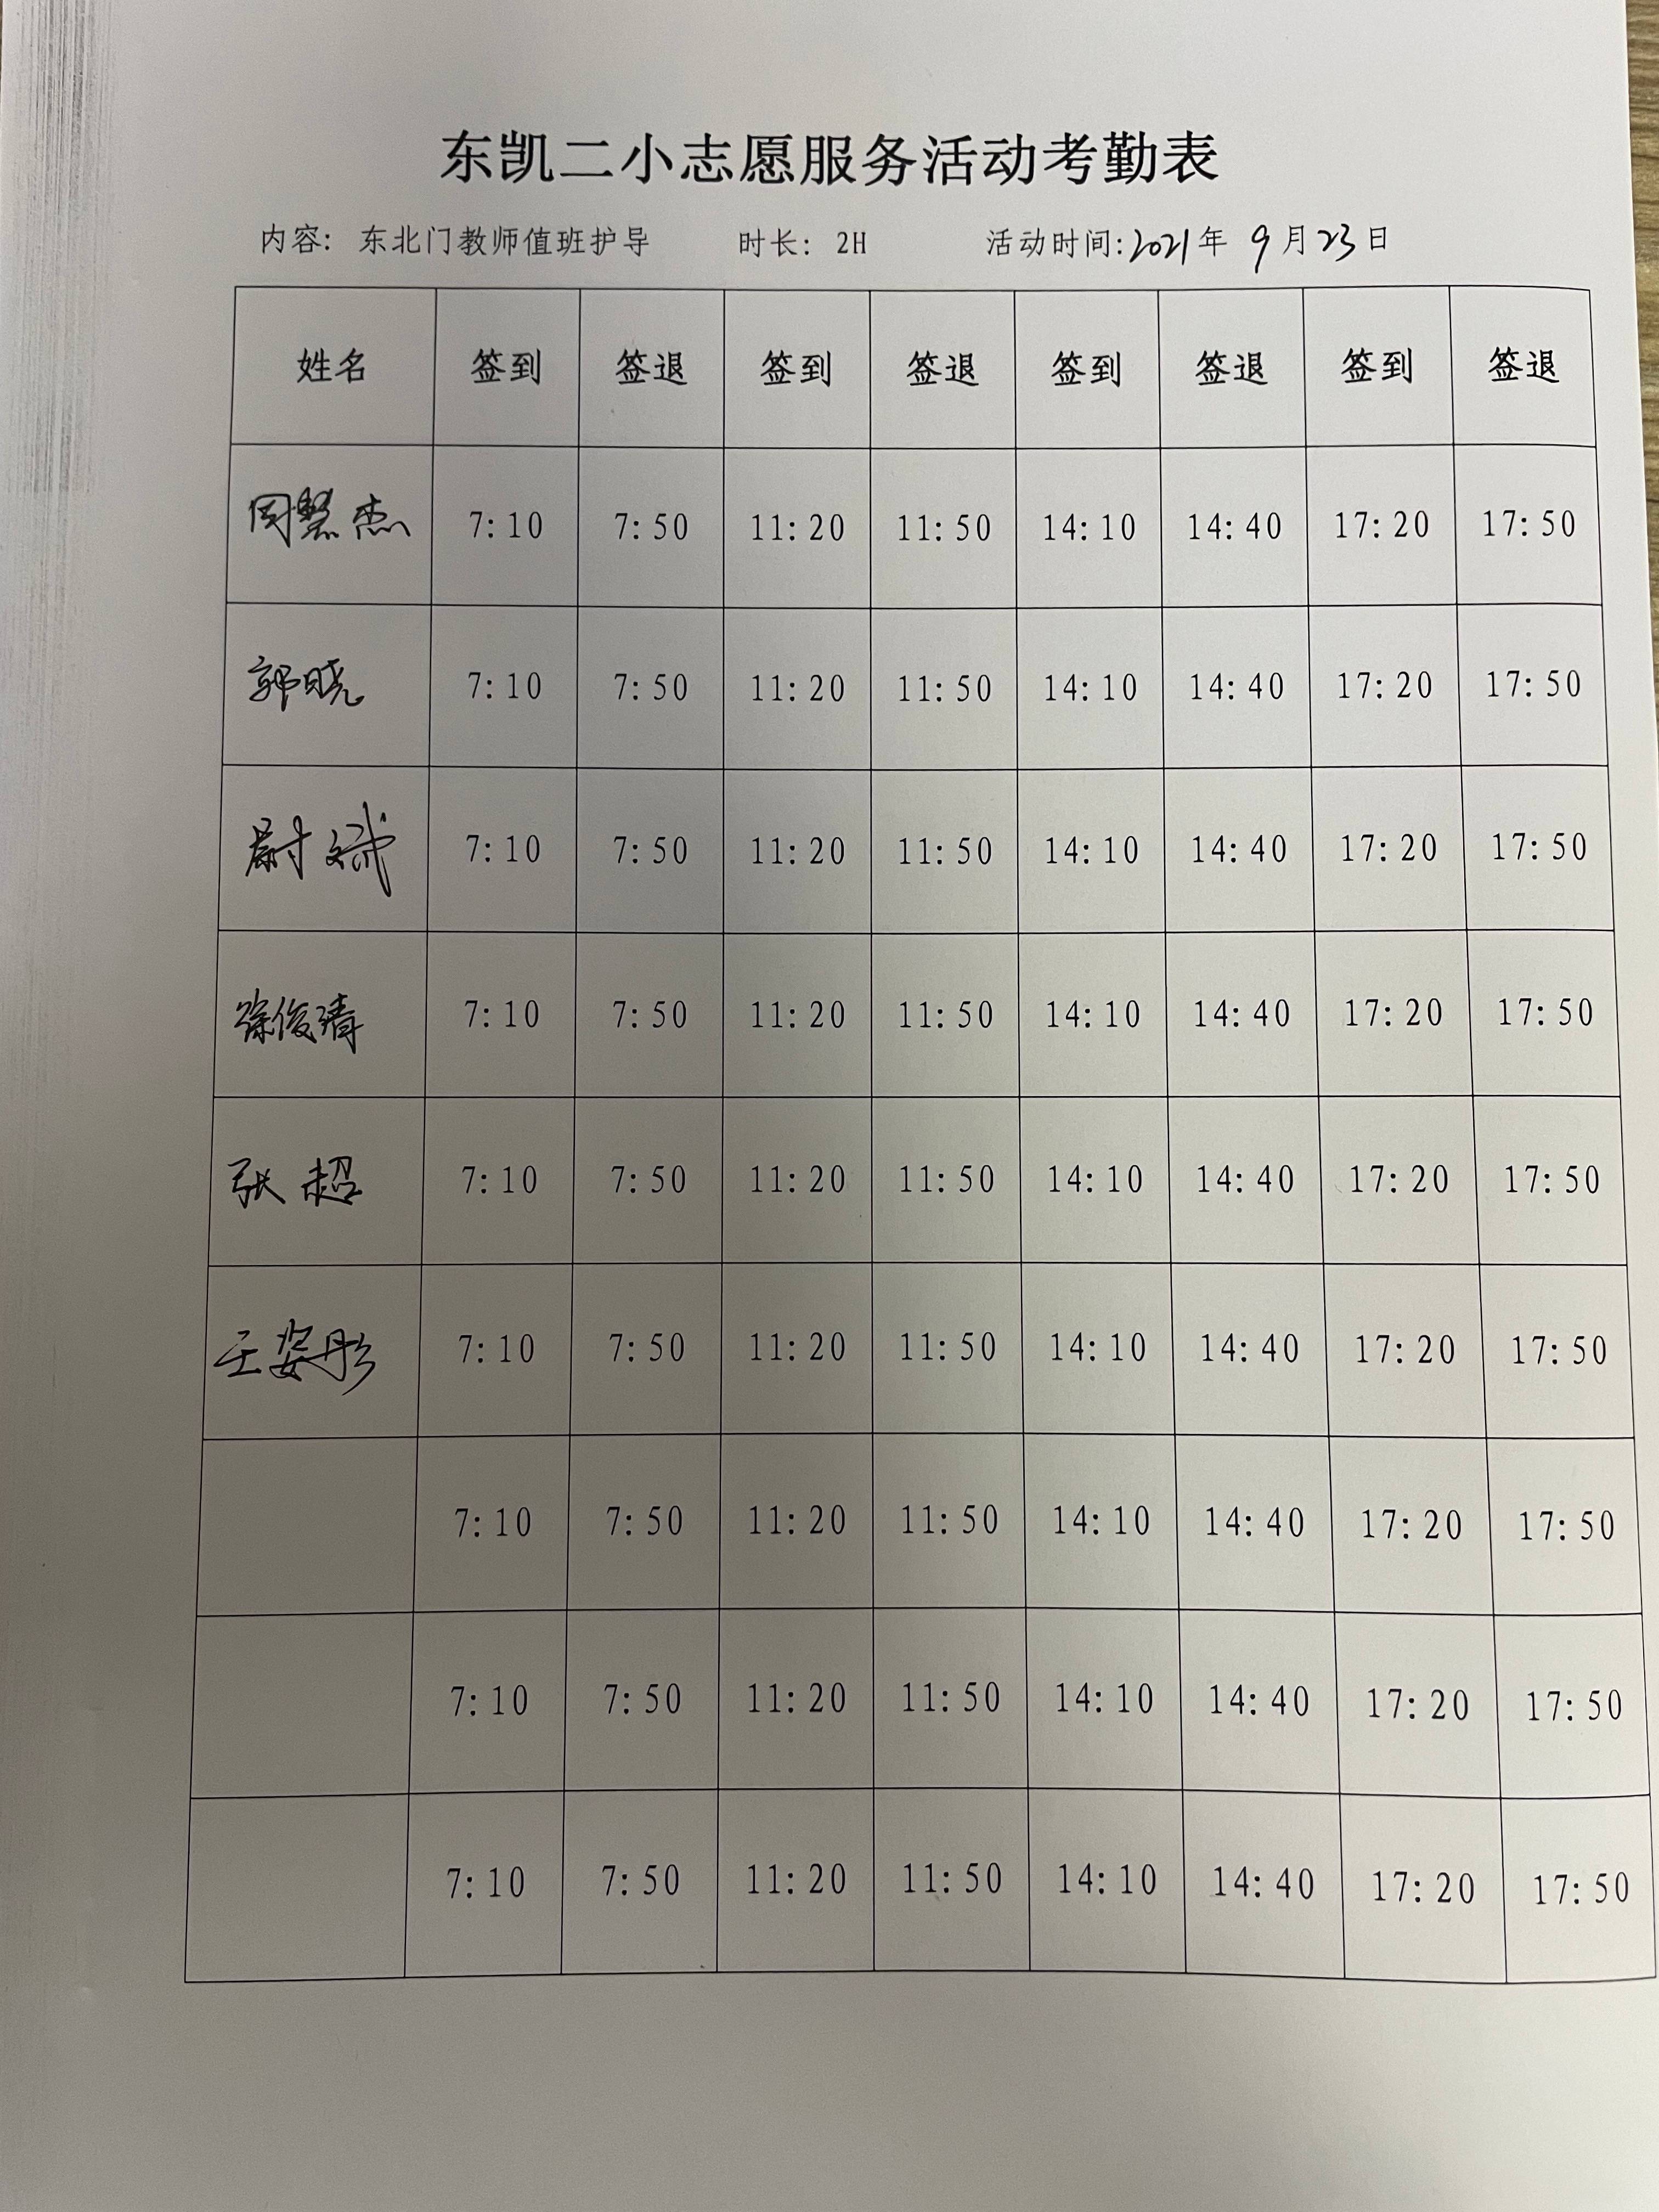 东凯二小志愿服务活动考勤表
内容: 东北门教师值班护导 时长: 2H 活动时间:2021年 9月23日
姓名 签到 签退 签到 签退 签到 签退 签到 签退
周慧杰 7:10 7:50 11:20 11:50 14:10 14:40 17:20 17:50
郭晓 7:10 7:50 11:20 11:50 14:10 14:40 17:20 17:50
尉斌 7:10 7:50 11:20 11:50 14:10 14:40 17:20 17:50
徐俊清 7:10 7:50 11:20 11:50 14:10 14:40 17:20 17:50
张超 7:10 7:50 11:20 11:50 14:10 14:40 17:20 17:50
王姿彤 7:10 7:50 11:20 11:50 14:10 14:40 17:20 17:50
7:10 7:50 11:20 11:50 14:10 14:40 17:20 17:50
7:10 7:50 11:20 11:50 14:10 14:40 17:20 17:50
7:10 7:50 11:20 11:50 14:10 14:40 17:20 17:50